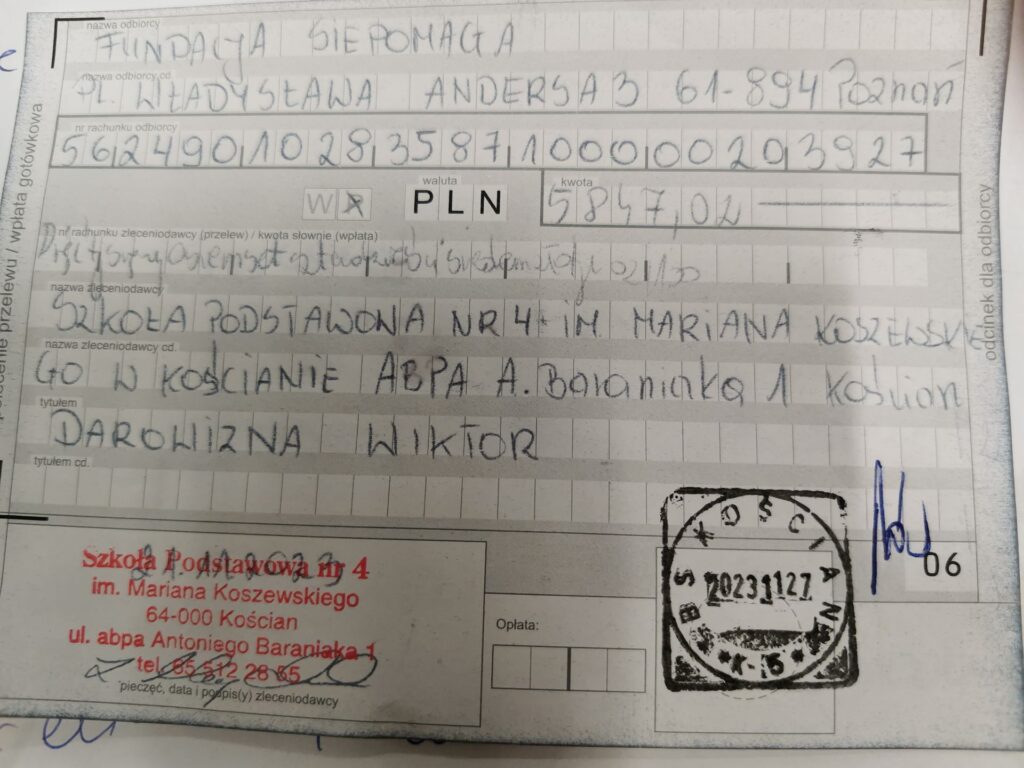 nazwa odbiorcy
FUNDACJA SIEPOMAGA
nazwa odbiorcy cd.
PL. WŁADYSŁAWA ANDERSA 3 61-894 Poznań
nr rachunku odbiorcy
56249010283587100000203927
waluta
kwota
W
PLN
5847,02
nr rachunku zleceniodawcy (przelew) / kwota słownie (wpłata)
nazwa zleceniodawcy
SZKOŁA PODSTAWOWA NR 4 IM MARIANA KOSZEWSKIE
nazwa zleceniodawcy cd.
GO W KOŚCIANIE ABPA A. Baraniaka 1 Kościan
tytułem
DAROWIZNA WIKTOR
tytułem cd.
Szkoła Podstawowa nr 4
im. Mariana Koszewskiego
64-000 Kościan
ul. abpa Antoniego Baraniaka 1
tel. 65 512 28 65
pieczęć, data i podpis(y) zleceniodawcy
Opłata:
BS * KOŚCIAN
20231127
*K-5*
06
polecenie przelewu / wpłata gotówkowa
odcinek dla odbiorcy